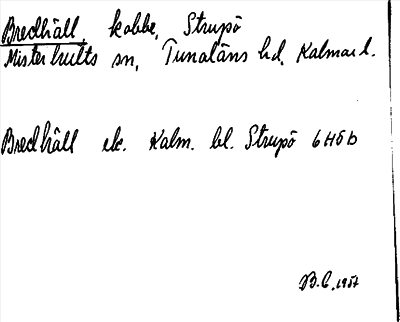 Bredhäll, kobbe, Strupö
Misterhults sn, Tunaläns hd, Kalmar l.
Bredhäll ek. Kalm. bl. Strupö 6H5b
B.C. 1957